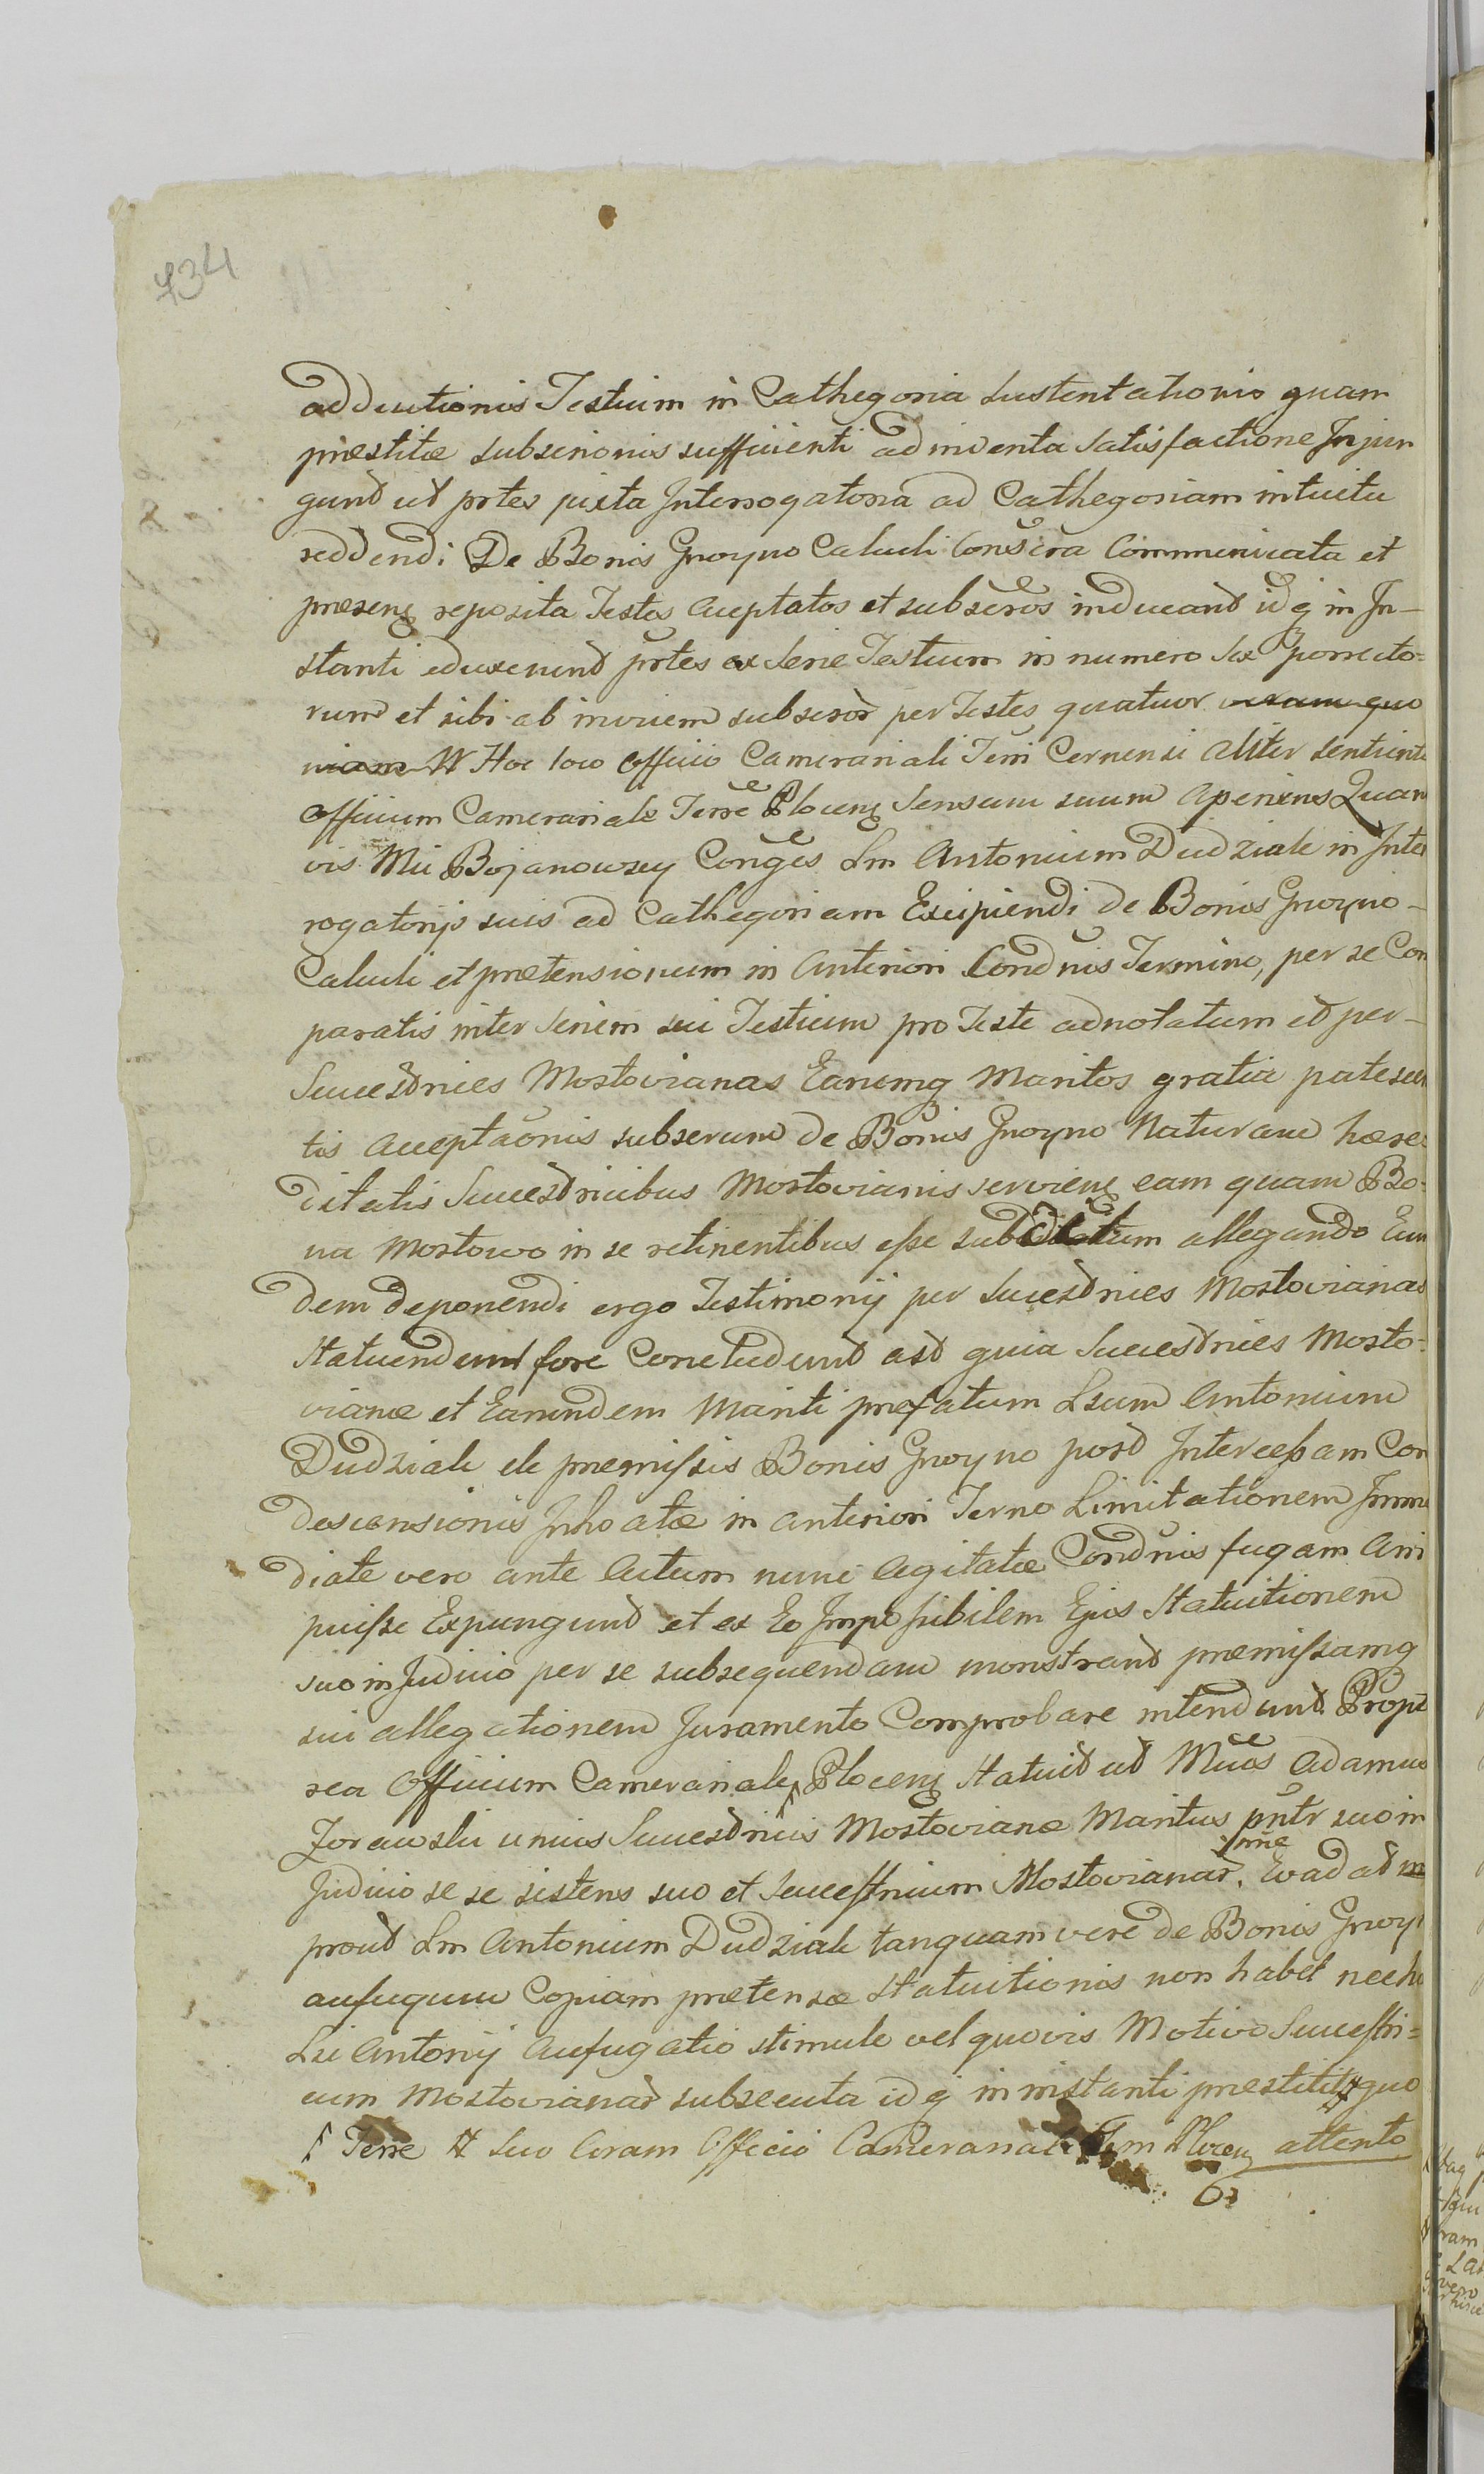 734
adductionis Testium in Cathegoria sustentationis quam
præstitæ subscrionis sufficienti adinventa satisfactione Injun
gunt ut prtes juxta Interrogatoria ad Cathegoriam intuitu
reddendi De Bonis Gnoyno Calculi Conscra Communicata et
præsens reposita Testes aceptatos et subscros inducant idq in In-
stanti eduxerunt prtes ex serie Testium in numero sex porrecto=
rum et sibi ab invicem subscror per Testes quatuor verum quo
niam W Hoc loco officio Camerariali Terri Cernensi aliter sentiente
officium Camerariale Terre Plocens sensum suum Aperiens Quam
vis Mci Bojanowscy Conges Lm Antonium Dudziak in Inter
rogatorijs suis ad Cathegoriam Excipiendi de Bonis Gnoyno
Calculi et prætensionum in Anteriori Condnis Termino, per se Com
paratis inter seriem sui Testium pro Teste adnotatum et per
Succestrices Mostovianas Earumq Maritos gratia patescen
tis acceptaonis subscrum de Bonis Gnoyno Naturam hære
ditatis Succestricibus Mostovianis serviens eam quam Bo=
na Mostowo in se retinentibus esse subditum allegando Eun
dem deponendi ergo Testimonij per Sucestrices Mostovianas
Statuendum fore Concludunt ast quia Sucestrices Mosto=
vianæ et Earundem Mariti præfatum Lsum Antonium
Dudziak de præmissis Bonis Gnoyno post Intercessam Con
descensionis Inhoatæ in anteriori Terno Limitationem Imme
diate vero ante Actum nunc Agitatæ Condnis fugam Arri
puisse Expungunt et ex Eo Impossibilem Ejus Statuitionem
suo in Judicio per se subsequendam monstrant præmissamq
sui allegationem Juramento Comprobare intendunt Propte
rea Officium Camerariale Plocens Statuit ut Mcus Adamus
Zorawski unius Succestricis Mostovianæ Maritus pntr suo in
Judicio se se sistens suo et Succestricium Mostovianar. nne Evadat in
prout Lm Antonium Dudziak tanquam vere de Bonis Gnoyn
aufugum Copiam prætensæ Statuitionis non habet nec hæ
Lsi Antonij Aufugatio stimulo vel quovis Motivo Successtri=
cum Mostovianar subsecuta idq in instanti præstitit # quo
Terre # suo Coram Officio Camerariali Trm Plocens attento